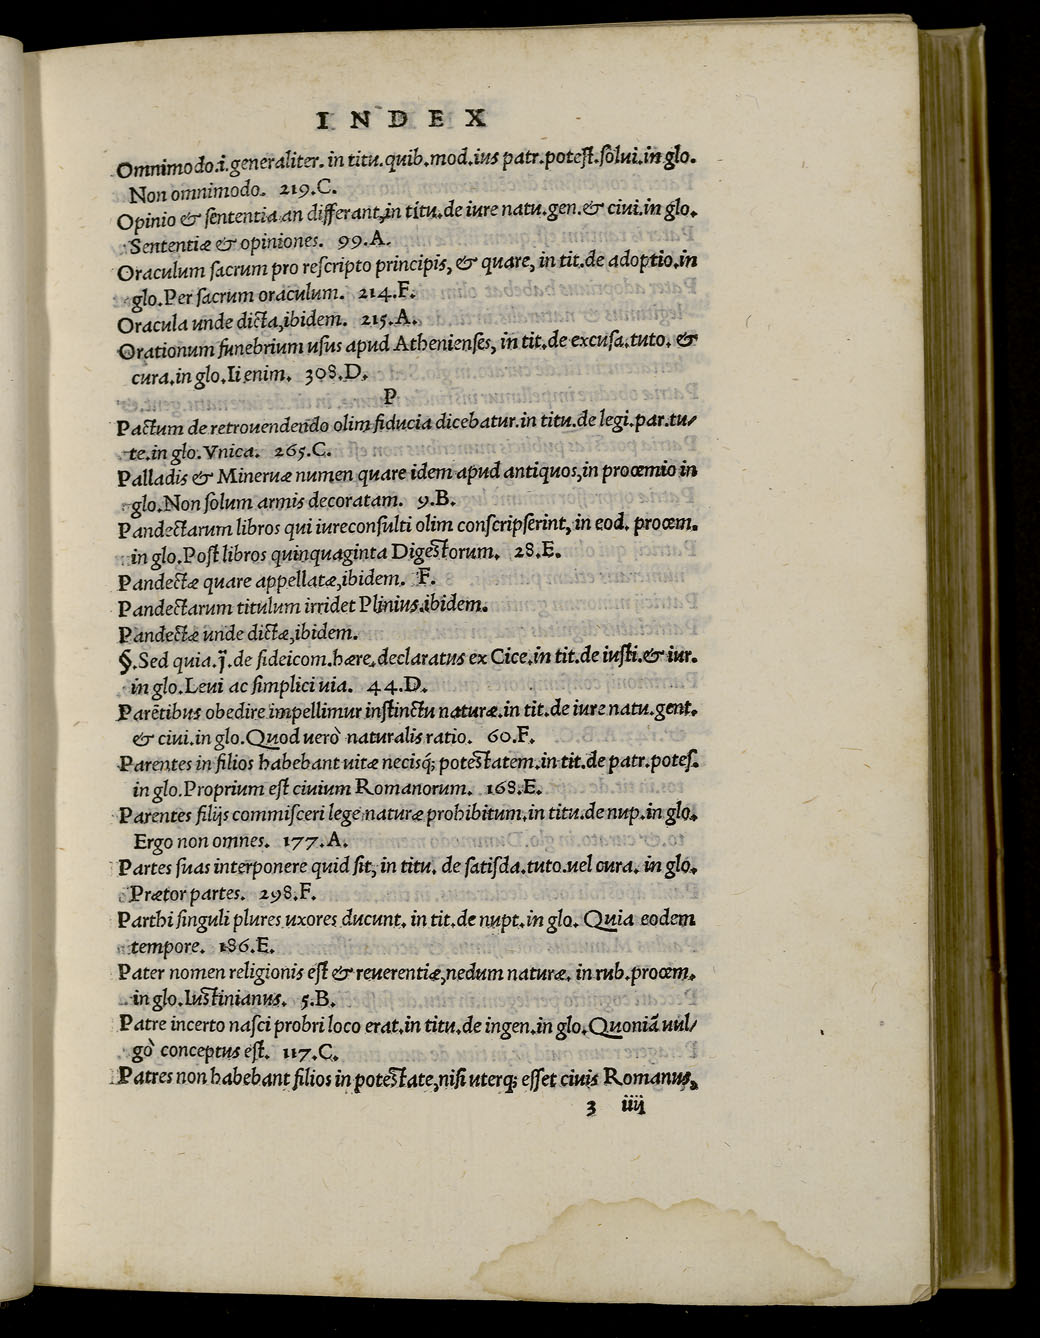 INDEX
Omnimodo.i.generaliter. in titu.quib.mod.ius patr.potest.solui.in glo.
Non omnimodo. 219.C.
Opinio & sententia an differant,in titu.de iure natu.gen.& ciui.in glo.
Sententiæ & opiniones. 99.A.
Oraculum sacrum pro rescripto principis, & quare, in tit.de adoptio.in
glo.Per sacrum oraculum. 214.F.
Oracula unde dicta,ibidem. 215.A.
Orationum funebrium usus apud Athenienses, in tit.de excusa.tuto. &
cura.in glo.Ii enim. 308.D.
P
Pactum de retrouendendo olim fiducia dicebatur.in titu.de legi.par.tu/
te.in glo.Vnica. 265.C.
Palladis & Mineruæ numen quare idem apud antiquos,in procemio in
glo.Non solum armis decoratam. 9.B.
Pandectarum libros qui iureconsulti olim conscripserint, in eod. proœm.
in glo.Post libros quinquaginta Digestorum. 28.E.
Pandectæ quare appellatæ,ibidem. F.
Pandectarum titulum irridet Plinius.ibidem.
Pandectæ unde dictæ,ibidem.
§.Sed quia.j̄.de fideicom.hære.declaratus ex Cice.in tit.de iusti.& iur.
in glo.Leui ac simplici uia. 44.D.
Parētibus obedire impellimur instinctu naturæ.in tit.de iure natu.gent.
& ciui.in glo.Quod uerò naturalis ratio. 60.F.
Parentes in filios habebant uitæ necisq́; potestatem.in tit.de patr.potes.
in glo.Proprium est ciuium Romanorum. 168.E.
Parentes filijs commisceri lege naturæ prohibitum.in titu.de nup.in glo.
Ergo non omnes. 177.A.
Partes suas interponere quid sit, in titu. de satisda.tuto.uel cura. in glo.
Prætor partes. 298.F.
Parthi singuli plures uxores ducunt. in tit.de nupt.in glo. Quia eodem
tempore. 186.E.
Pater nomen religionis est & reuerentiæ,nedum naturæ. in rub.proœm.
in glo.Iustinianus. 5.B.
Patre incerto nasci probri loco erat.in titu.de ingen.in glo.Quoniā uul/
gò conceptus est. 117.C.
Patres non habebant filios in potestate,nisi uterq; esset ciuis Romanus,
3 iiij